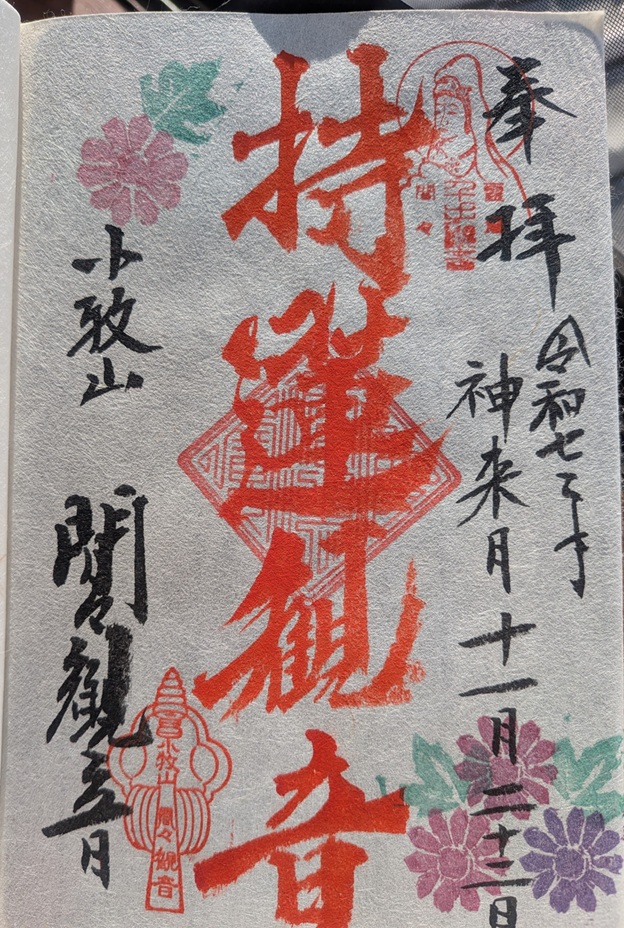 奉拝
令和七年
神来月十一月二十二日
持蓮観音
小牧山
間々觀音
小牧山
間々観音